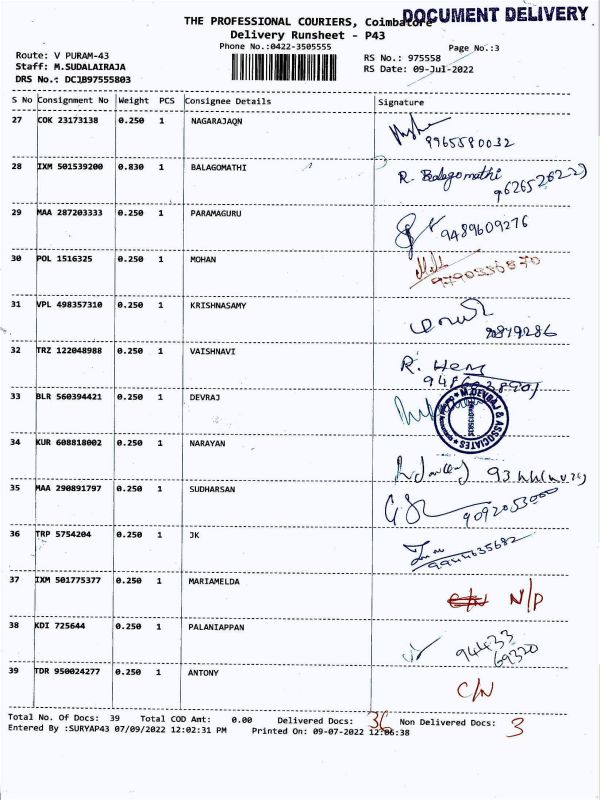 THE PROFESSIONAL COURIERS, Coimbatore DOCUMENT DELIVERY
Delivery Runsheet - P43
Phone No.:0422-3505555
Page No.:3
Route: V PURAM-43
RS No.: 975558
Staff: M.SUDALAIRAJA
RS Date: 09-Jul-2022
DRS No.: DCJB97555803
S No Consignment No Weight PCS Consignee Details Signature
27 COK 23173138 0.250 1 NAGARAJAQN
9965580032
28 IXM 501539200 0.830 1 BALAGOMATHI R. Balagomathi
29 MAA 287203333 0.250 1 PARAMAGURU 9489609276
30 POL 1516325 0.250 1 MOHAN
31 VPL 498357310 0.250 1 KRISHNASAMY
32 TRZ 122048988 0.250 1 VAISHNAVI R. Hem
33 BLR 560394421 0.250 1 DEVRAJ M.DEVRAJ & ASSOCIATES
34 KUR 608818002 0.250 1 NARAYAN
35 MAA 290891797 0.250 1 SUDHARSAN
36 TRP 5754204 0.250 1 JK
9944635682
37 IXM 501775377 0.250 1 MARIAMELDA N/P
38 KDI 725644 0.250 1 PALANIAPPAN 94433
69320
39 TDR 950024277 0.250 1 ANTONY C/N
Total No. Of Docs: 39 Total COD Amt: 0.00 Delivered Docs: 36 Non Delivered Docs: 3
Entered By :SURYAP43 07/09/2022 12:02:31 PM Printed On: 09-07-2022 12:06:38